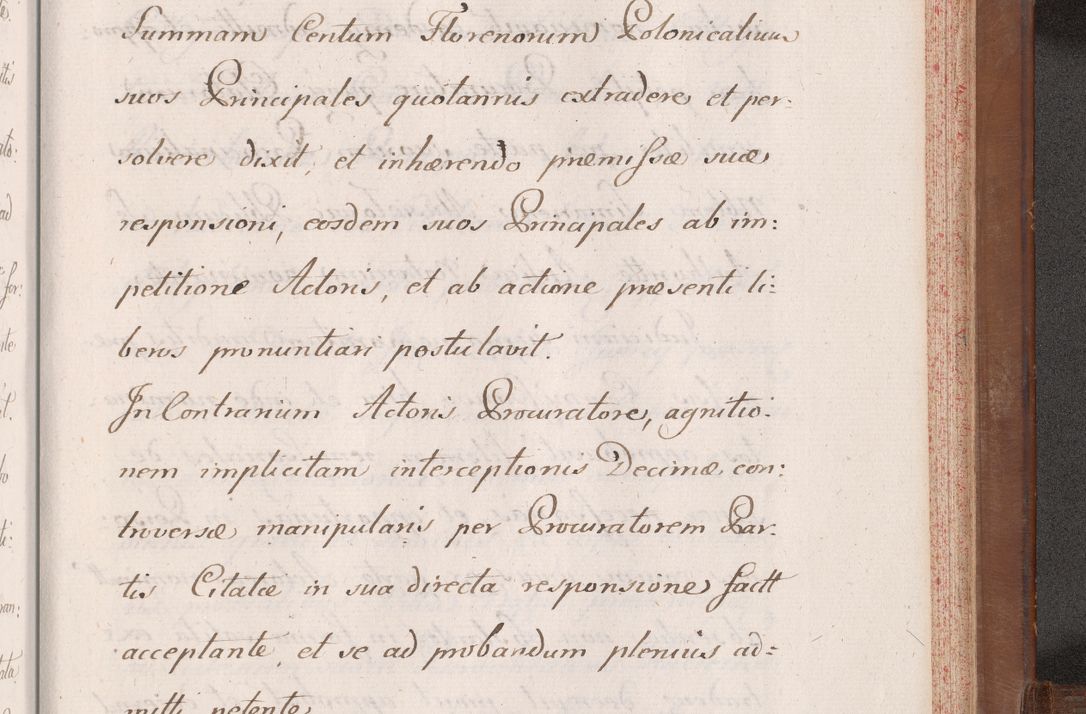 Summam Centum Florenorum Polonicalium
suos Principales quotannis extradere et per:
solvere dixit, et inhærendo præmissæ suæ
responsioni, eosdem suos Principales ab im:
petitione Actoris, et ab actione præsenti li:
beros pronuntiari postulavit.
In Contrarium Actoris Procuratore, agnitio:
nem implicitam interceptionis Decimæ con:
troversæ manipularis per Procuratorem Par:
tis Citatæ in sua directa responsione factt
acceptante, et se ad probandum plenius ad=
mitti petente